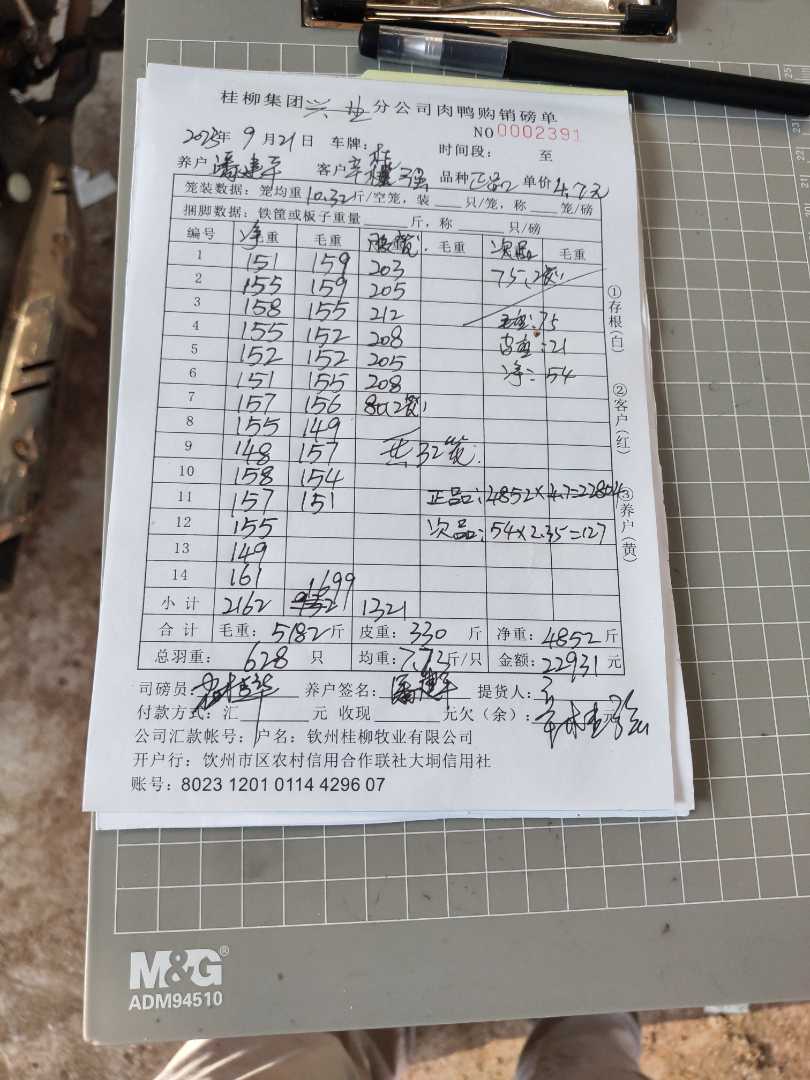 桂柳集团兴业分公司肉鸭购销磅单
NO 0002391
2025年 9月21日 车牌: 时间段: 至
养户 潘建军 客户 品种 正品 单价 4.7元
笼装数据: 笼均重 10.32 斤/空笼, 装 只/笼, 称 笼/磅
捆脚数据: 铁筐或板子重量 斤, 称 只/磅
编号 净毛重 毛重 毛重 次品 毛重
1 151 159 203 75(2笼)
2 155 159 205
3 158 155 212 毛重: 75
4 155 152 208 皮重: 21
5 152 152 205 净: 54
6 151 155 208
7 157 156 80(2笼)
8 155 149
9 148 157 共32笼
10 158 154
11 157 151 正品: 4852×4.7=22804
12 155 次品: 54×2.35=127
13 149
14 161
小计 2162 1699 1321
合计 毛重: 5182斤 皮重: 330 斤 净重: 4852斤
总羽重: 628 只 均重: 7.73斤/只 金额: 22931元
司磅员: 养户签名: 潘建军 提货人:
付款方式: 汇 元 收现 元欠(余): 元
公司汇款帐号: 户名: 钦州桂柳牧业有限公司
开户行: 钦州市区农村信用合作联社大垌信用社
账号: 8023 1201 0114 4296 07
①存根(白)
②客户(红)
③养户(黄)
M&G
ADM94510